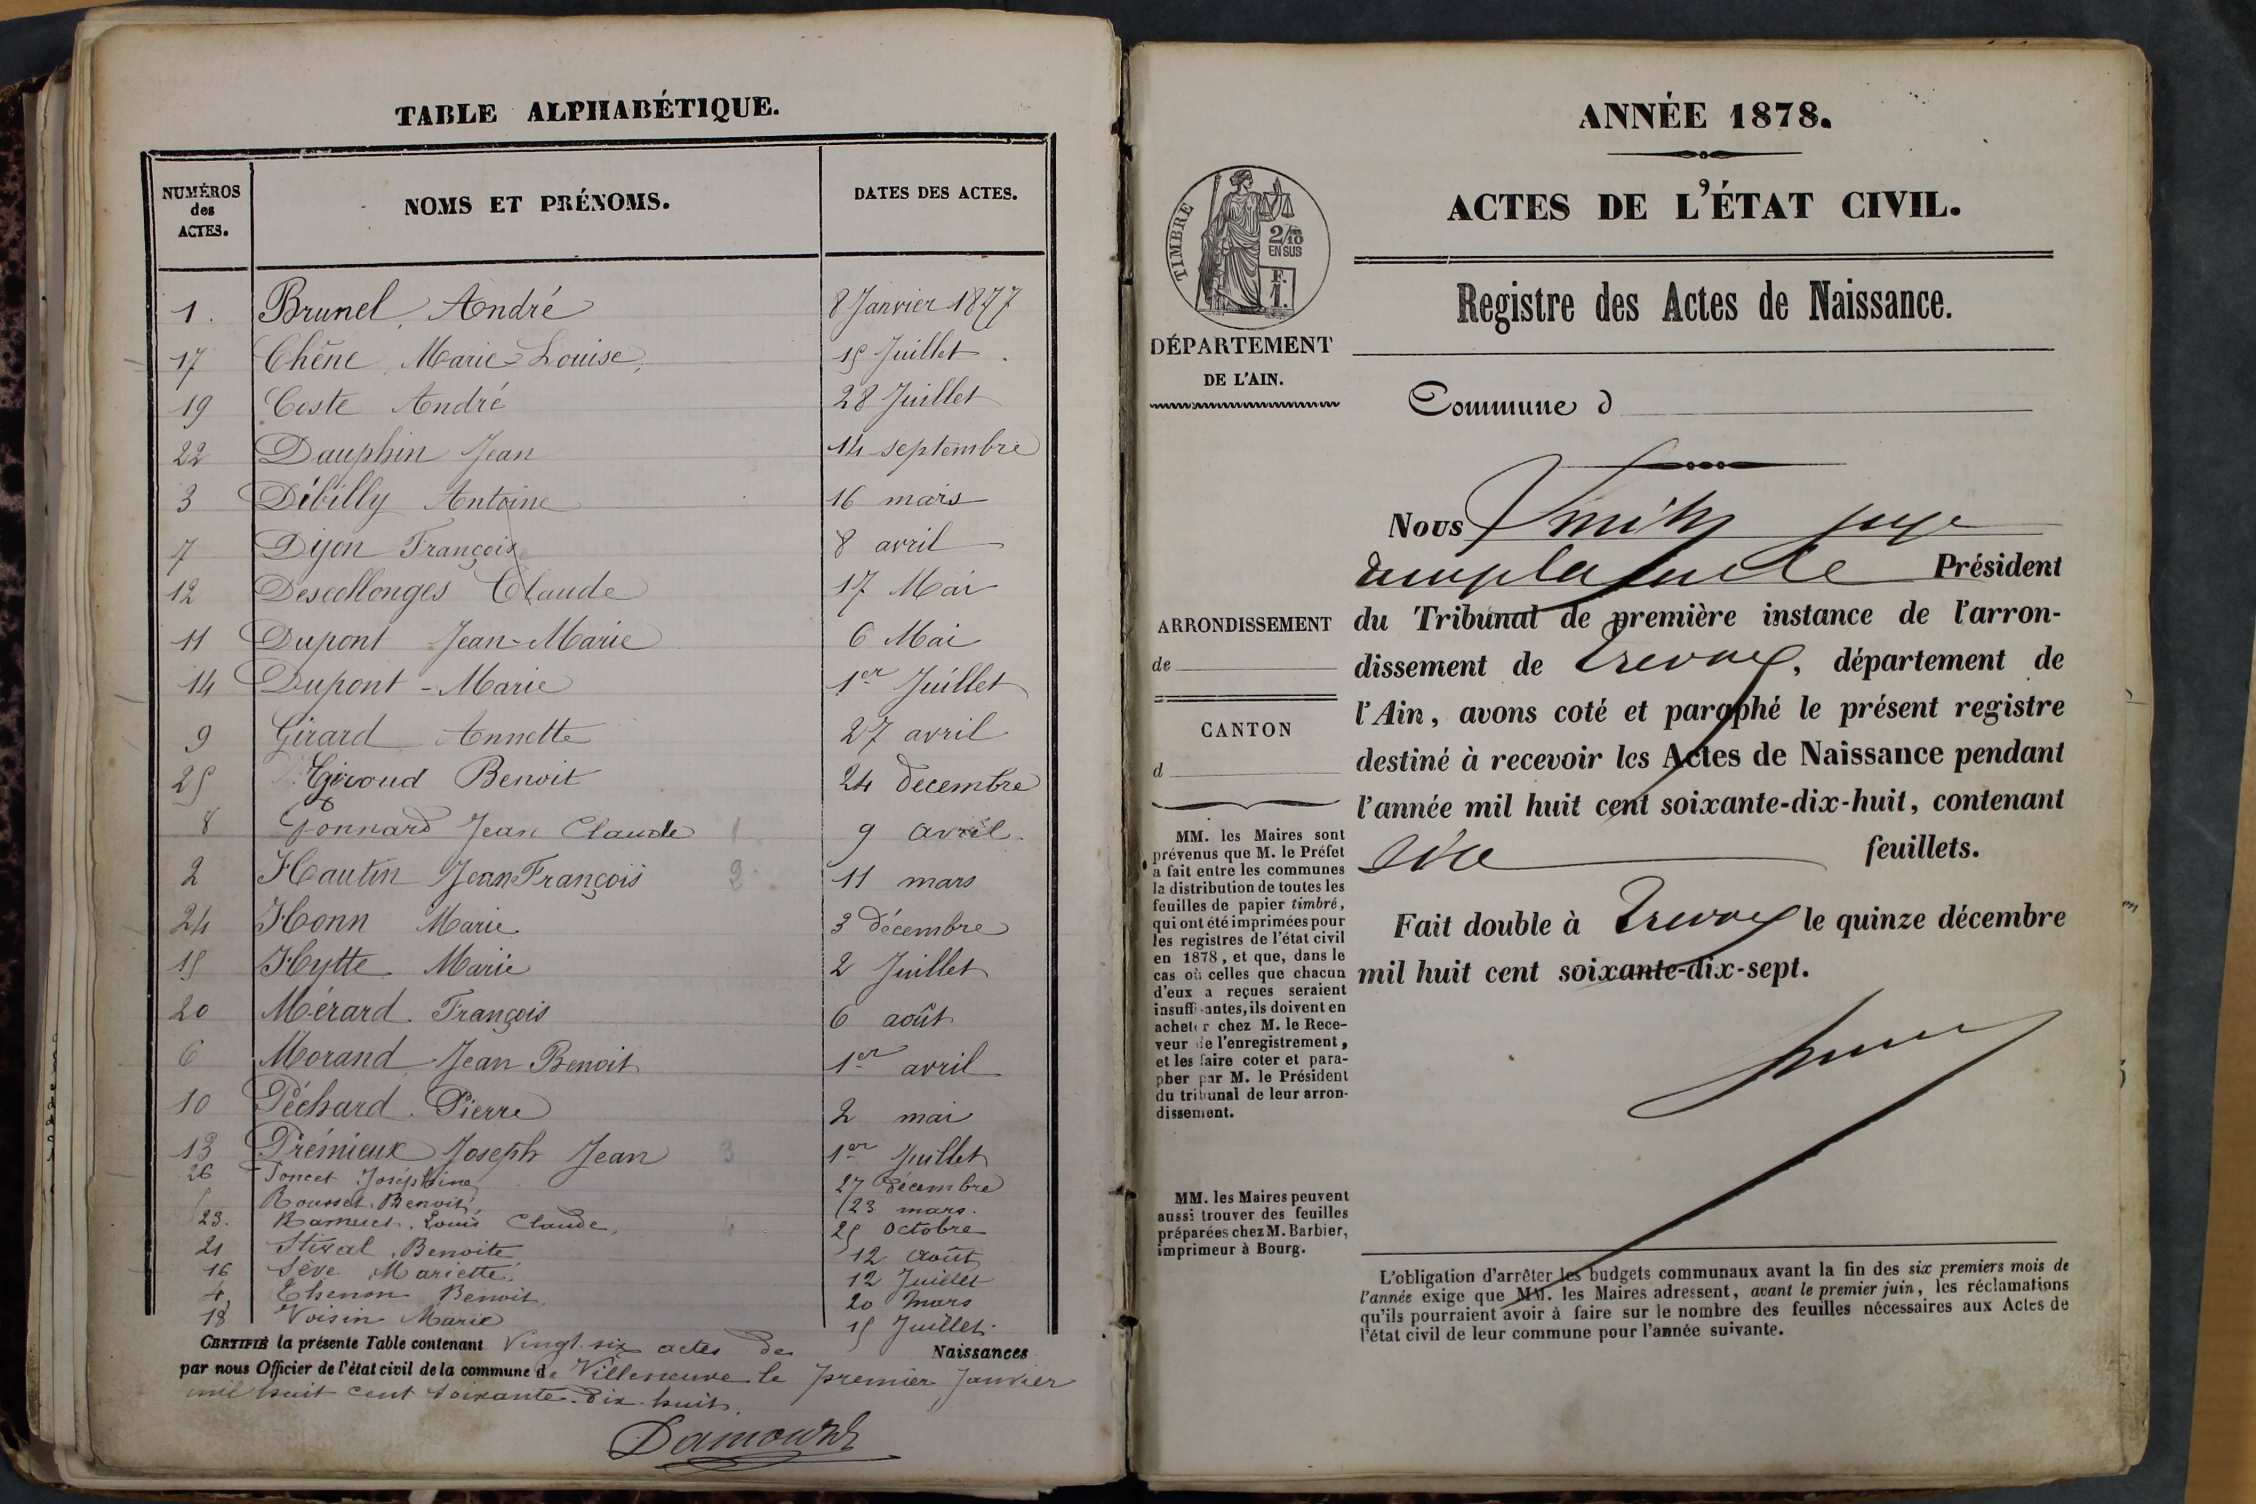 TABLE ALPHABÉTIQUE.
NUMÉROS des ACTES. NOMS ET PRÉNOMS. DATES DES ACTES.
1. Brunel, André 8 Janvier 1877
17 Chêne, Marie-Louise, 15 Juillet
19 Coste André 28 Juillet
22 Dauphin Jean 14 septembre
3 Débilly Antoine 16 mars
7 Dijon François 8 avril
12 Descollonges Claude 17 Mai
11 Dupont Jean-Marie 6 Mai
14 Dupont-Marie 1er Juillet
9 Girard Annette 27 avril
25 Giroud Benoit 24 décembre
8 Gonnard Jean Claude 1 9 avril
2 Hautin Jean François 2 11 mars
24 Honn Marie 3 décembre
15 Hytte Marie 2 Juillet
20 Mérard François 6 août
6 Morand Jean Benoit 1er avril
10 Péchard Pierre 2 mai
13 Prémieux Joseph Jean 3 1er Juillet
26 Poncet Joséphine 27 décembre
Rousset Benoit 23 mars.
23. Louis Claude, 4 25 octobre
21 Benoite 12 août
16 Sève Mariette 12 Juillet
4 Thenon Benoit. 20 mars
18 Voisin Marie 15 Juillet.
CERTIFIÉ la présente Table contenant Vingt six actes de Naissances
par nous Officier de l'état civil de la commune de Villeneuve le premier Janvier
mil huit cent soixante-dix-huit.
ANNÉE 1878.
ACTES DE L'ÉTAT CIVIL.
Registre des Actes de Naissance.
TIMBRE
2/10
EN SUS
F.
1.
DÉPARTEMENT
DE L'AIN.
Commune d
ARRONDISSEMENT
de
CANTON
d
MM. les Maires sont
prévenus que M. le Préfet
a fait entre les communes
la distribution de toutes les
feuilles de papier timbré,
qui ont été imprimées pour
les registres de l'état civil
en 1878, et que, dans le
cas où celles que chacun
d'eux a reçues seraient
insuffisantes, ils doivent en
acheter chez M. le Rece-
veur de l'enregistrement,
et les faire coter et para-
pher par M. le Président
du tribunal de leur arron-
dissement.
MM. les Maires peuvent
aussi trouver des feuilles
préparées chez M. Barbier,
imprimeur à Bourg.
Nous juge
Président
du Tribunal de première instance de l'arron-
dissement de Trévoux, département de
l'Ain, avons coté et paraphé le présent registre
destiné à recevoir les Actes de Naissance pendant
l'année mil huit cent soixante-dix-huit, contenant
feuillets.
Fait double à Trévoux le quinze décembre
mil huit cent soixante-dix-sept.
L'obligation d'arrêter les budgets communaux avant la fin des six premiers mois de
l'année exige que MM. les Maires adressent, avant le premier juin, les réclamations
qu'ils pourraient avoir à faire sur le nombre des feuilles nécessaires aux Actes de
l'état civil de leur commune pour l'année suivante.